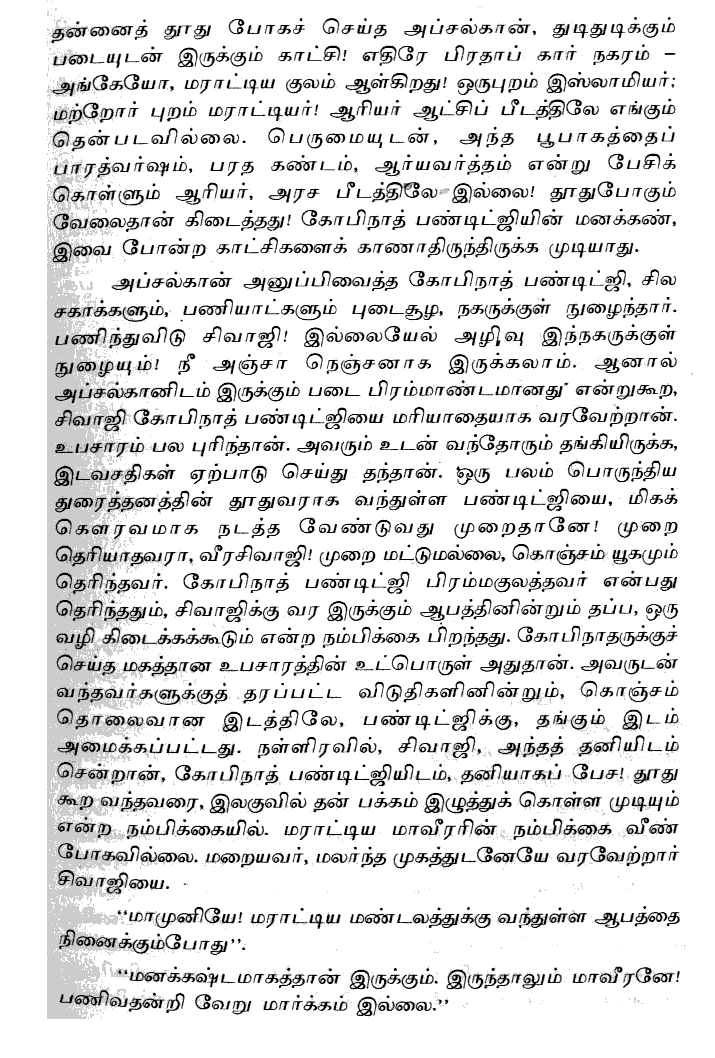 தன்னைத் தூது போகச் செய்த அப்சல்கான், துடிதுடிக்கும்
படையுடன் இருக்கும் காட்சி! எதிரே பிரதாப் கார் நகரம் –
அங்கேயோ, மராட்டிய குலம் ஆள்கிறது! ஒருபுறம் இஸ்லாமியர்;
மற்றோர் புறம் மராட்டியர்! ஆரியர் ஆட்சிப் பீடத்திலே எங்கும்
தென்படவில்லை. பெருமையுடன், அந்த பூபாகத்தைப்
பாரத்வர்ஷம், பரத கண்டம், ஆர்யவர்த்தம் என்று பேசிக்
கொள்ளும் ஆரியர், அரச பீடத்திலே இல்லை! தூதுபோகும்
வேலைதான் கிடைத்தது! கோபிநாத் பண்டிட்ஜியின் மனக்கண்,
இவை போன்ற காட்சிகளைக் காணாதிருந்திருக்க முடியாது.
அப்சல்கான் அனுப்பிவைத்த கோபிநாத் பண்டிட்ஜி, சில
சகாக்களும், பணியாட்களும் புடைசூழ, நகருக்குள் நுழைந்தார்.
பணிந்துவிடு சிவாஜி! இல்லையேல் அழிவு இந்நகருக்குள்
நுழையும்! நீ அஞ்சா நெஞ்சனாக இருக்கலாம். ஆனால்
அப்சல்கானிடம் இருக்கும் படை பிரம்மாண்டமானது' என்றுகூற,
சிவாஜி கோபிநாத் பண்டிட்ஜியை மரியாதையாக வரவேற்றான்.
உபசாரம் பல புரிந்தான். அவரும் உடன் வந்தோரும் தங்கியிருக்க,
இடவசதிகள் ஏற்பாடு செய்து தந்தான். ஒரு பலம் பொருந்திய
துரைத்தனத்தின் தூதுவராக வந்துள்ள பண்டிட்ஜியை, மிகக்
கௌரவமாக நடத்த வேண்டுவது முறைதானே! முறை
தெரியாதவரா, வீரசிவாஜி! முறை மட்டுமல்லை, கொஞ்சம் யூகமும்
தெரிந்தவர். கோபிநாத் பண்டிட்ஜி பிரம்மகுலத்தவர் என்பது
தெரிந்ததும், சிவாஜிக்கு வர இருக்கும் ஆபத்தினின்றும் தப்ப, ஒரு
வழி கிடைக்கக்கூடும் என்ற நம்பிக்கை பிறந்தது. கோபிநாதருக்குச்
செய்த மகத்தான உபசாரத்தின் உட்பொருள் அதுதான். அவருடன்
வந்தவர்களுக்குத் தரப்பட்ட விடுதிகளினின்றும், கொஞ்சம்
தொலைவான இடத்திலே, பண்டிட்ஜிக்கு, தங்கும் இடம்
அமைக்கப்பட்டது. நள்ளிரவில், சிவாஜி, அந்தத் தனியிடம்
சென்றான், கோபிநாத் பண்டிட்ஜியிடம், தனியாகப் பேச! தூது
கூற வந்தவரை, இலகுவில் தன் பக்கம் இழுத்துக் கொள்ள முடியும்
என்ற நம்பிக்கையில். மராட்டிய மாவீரரின் நம்பிக்கை வீண்
போகவில்லை. மறையவர், மலர்ந்த முகத்துடனேயே வரவேற்றார்
சிவாஜியை.
“மாமுனியே! மராட்டிய மண்டலத்துக்கு வந்துள்ள ஆபத்தை
நினைக்கும்போது”.
“மனக்கஷ்டமாகத்தான் இருக்கும். இருந்தாலும் மாவீரனே!
பணிவதன்றி வேறு மார்க்கம் இல்லை.”